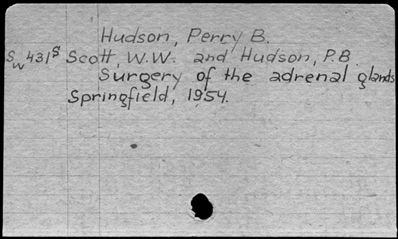 Hudson, Perry B.
Sw431s Scott, W.W. and Hudson, P.B.
Surgery of the adrenal glands
Springfield, 1954.